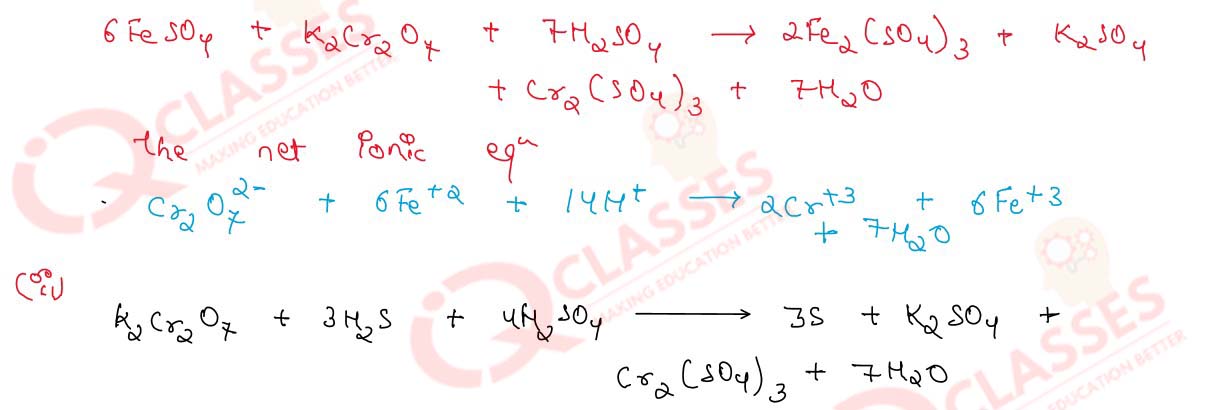 6FeSO₄ + K₂Cr₂O₇ + 7H₂SO₄ → 2Fe₂(SO₄)₃ + K₂SO₄
+ Cr₂(SO₄)₃ + 7H₂O
the net ionic eqⁿ
Cr₂O₇²⁻ + 6Fe⁺² + 14H⁺ → 2Cr⁺³ + 6Fe⁺³
+ 7H₂O
(ii)
K₂Cr₂O₇ + 3H₂S + 4H₂SO₄ → 3S + K₂SO₄ +
Cr₂(SO₄)₃ + 7H₂O
IQ CLASSES
MAKING EDUCATION BETTER
IQ CLASSES
MAKING EDUCATION BETTER
CLASSES
EDUCATION BETTER